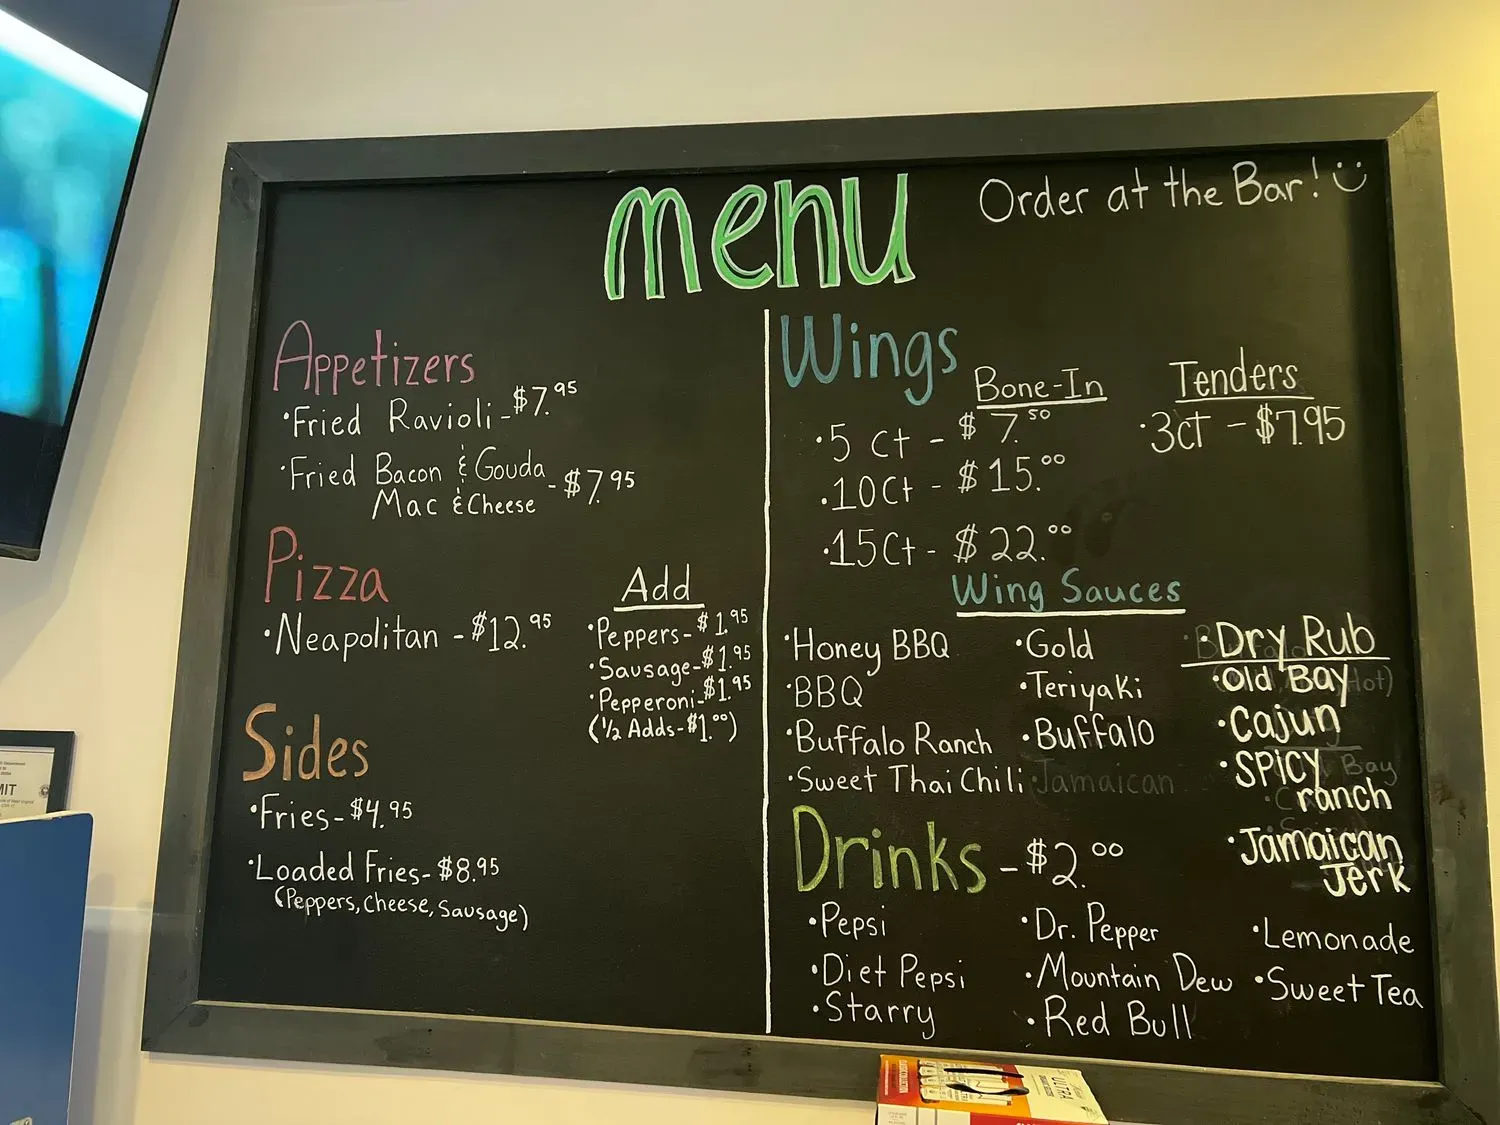 menu
Order at the Bar!
Appetizers
•Fried Ravioli-$7.95
•Fried Bacon & Gouda
Mac & Cheese -$7.95
Pizza
•Neapolitan -$12.95
Add
•Peppers-$1.95
•Sausage-$1.95
•Pepperoni-$1.95
(1/2 Adds-$1.00)
Sides
•Fries-$4.95
•Loaded Fries-$8.95
(Peppers, Cheese, Sausage)
Wings
Bone-In
•5 Ct - $7.50
•10Ct - $15.00
•15Ct - $22.00
Tenders
•3ct - $7.95
Wing Sauces
•Honey BBQ
•BBQ
•Buffalo Ranch
•Sweet Thai Chili
•Gold
•Teriyaki
•Buffalo
Jamaican
•Dry Rub
•Old Bay
•Cajun
•Spicy
ranch
•Jamaican
Jerk
Drinks -$2.00
•Pepsi
•Diet Pepsi
•Starry
•Dr. Pepper
•Mountain Dew
•Red Bull
•Lemonade
•Sweet Tea
MIT
ULTRA